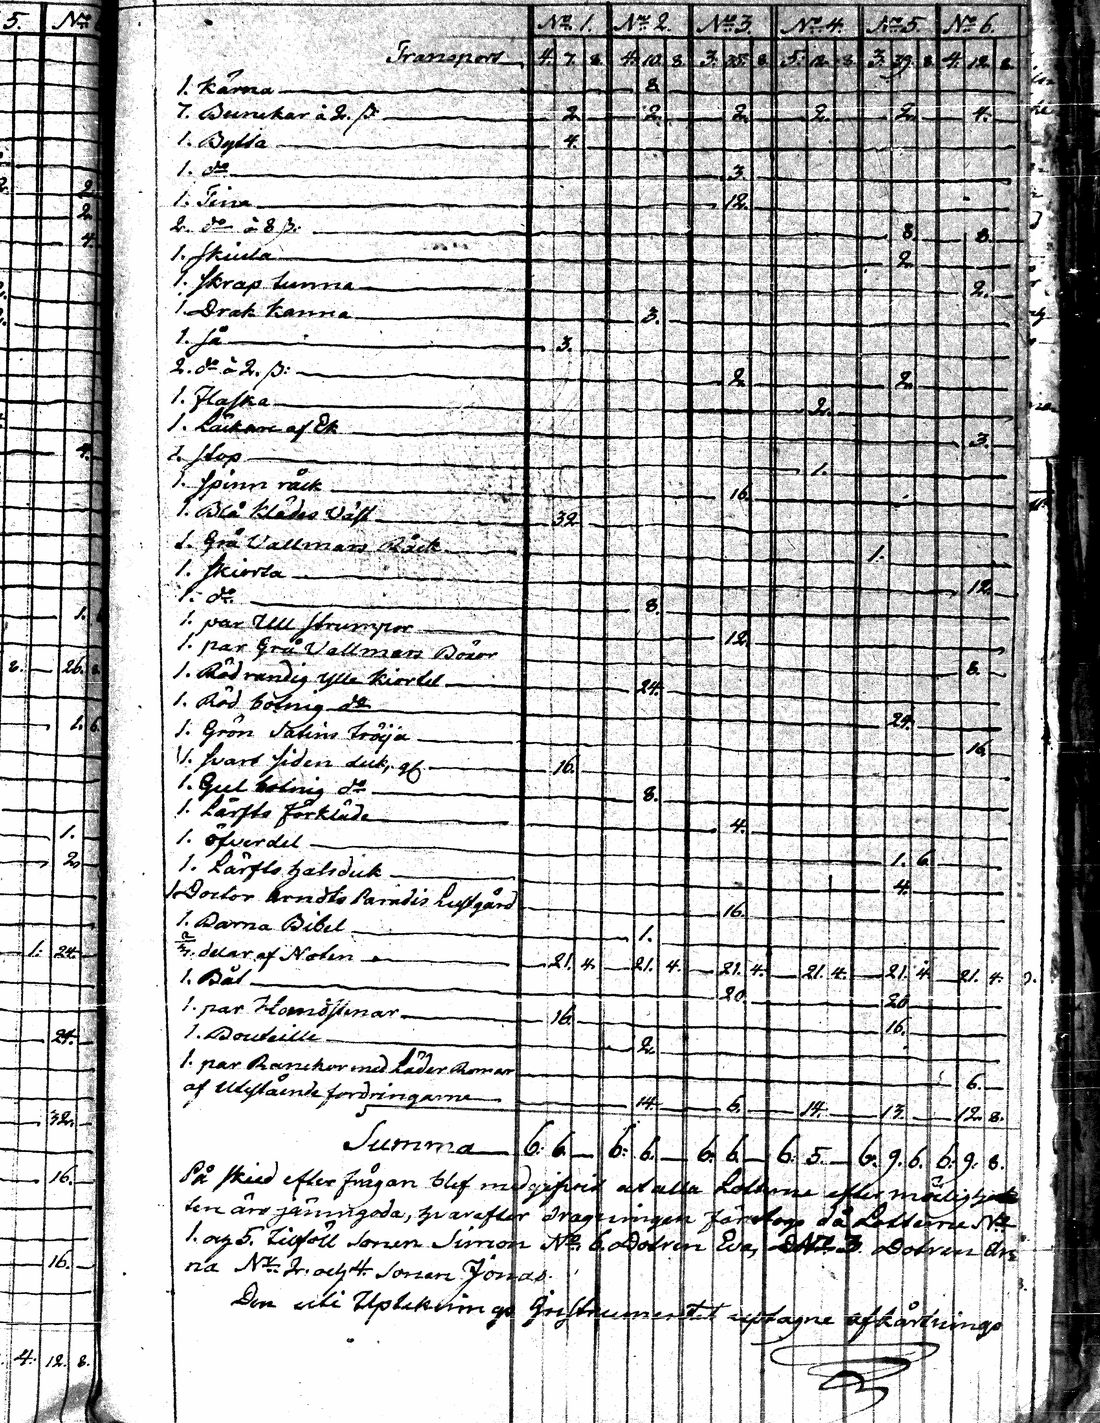 No 1. No 2. No 3. No 4. No 5. No 6.
Transport 4. 7. 8. 4. 10. 8. 3. 8. 5. 12. 8. 3. 8. 4. 12. 8.
1. Kärna 8.
7. Bunckar à 2. ß 2. 2. 2. 2. 2. 4.
1. Bytta 4.
1. do 3.
1. Tina 12.
2. do à 8 ß: 8. 8.
1. 2.
1. Skrap tunna 2.
1. Drak kanna 3.
1. Så 3.
2. do à 2. ß: 2. 2.
1. Flaska 2.
1. af Ek 3.
1. Stop 1.
1. Spinn råck 16.
1. Blå Klädes Väst 32.
1. Grå Vallmars Råck 1.
1. Skiorta 12.
1. do 8.
1. par Ull Strumpor 12.
1. par Grå Vallmars Böxor 8.
1. Röd randig ylle Kiortel 24.
1. Röd botnig do 24.
1. Grön Satins tröija 16.
1. Svart Siden duk, gl. 16.
1. Gul botnig do 8.
1. Lärfts förkläde 4.
1. öfverdel 1. 6.
1. Lärfts halsduk 4.
1. Doctor Arndts Paradis Lustgård 16.
1. Barna Bibel 1.
delar af Noten 21. 4. 21. 4. 21. 4. 21. 4. 21. 4. 21. 4.
1. Båt 20. 20.
1. par 16. 16.
1. Bouteille 2.
1. par med Läder Remar 6.
af Utestående fordringarne 14. 6. 14. 13. 12. 8.
Summa 6. 6. — 6. 6. — 6. 6. — 6. 5. — 6. 9. 6. 6. 9. 8.
På skied efter frågan blef medgifvit at alla Lotterne efter möielighe
ten äro jämngoda, hvarefter dragningen företogs då Lotterne No
1. och 5. tilföll Sonen Simon No 6. Dotren Eva, No 3. Dotren An
na No 2. och 4. Sonen Jonas.
Den uti Uptecknings Instrumentet uptagne afkårtnings